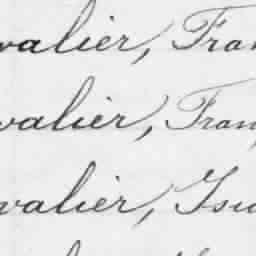 valier, Fran
valier, Fran
valier, Isa